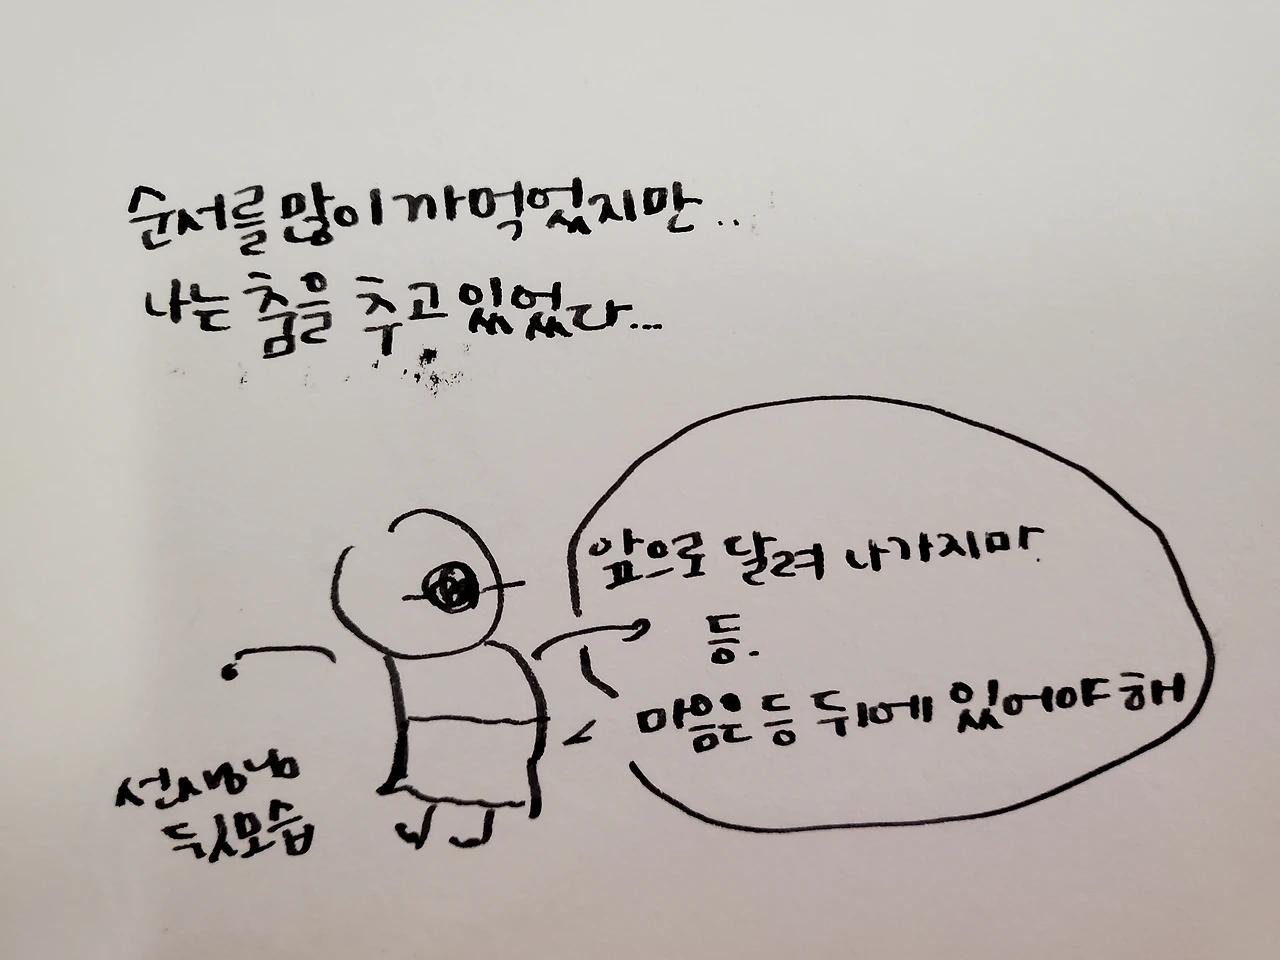 순서를 많이 까먹었지만..
나는 춤을 추고 있었다...
앞으로 달려 나가지마
등.
마음은 등 뒤에 있어야 해
선생님
뒷모습